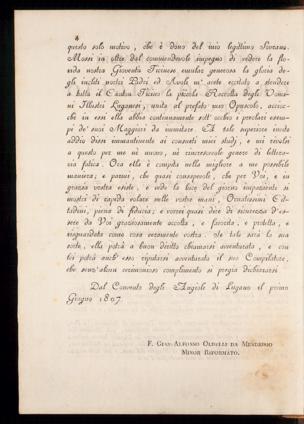 4
questo solo motivo, che è dono del mio legittimo Sovrano.
Mossi in oltre dal commendevole impegno di vedere la flo-
rida nostra Gioventù Ticinese emular generosa la gloria de-
gli incliti nostri Padri ed Avoli m' avete eccitato a stendere
a tutto il Cantone Ticino la piccola Raccolta degli Uomi-
ni Illustri Luganesi, unita al prefato mio Opuscolo, accioc-
chè in essi ella abbia continuamente sott' occhio i preclari esem-
pi de' suoi Maggiori da immitare. A tale superiore invito
addio dissi immantinente ai consueti miei studj, e mi rivolsi
a questo per me nè nuovo, nè rincrescevole genere di lettera-
ria fatica. Ora ella è compita nella migliore a me possibile
maniera; e parmi, che quasi consapevole, che per Voi, e in
grazia vostra esiste, e vide la luce del giorno impaziente si
mostri di rapida volare nelle vostre mani, Ornatissimi Cit-
tadini, piena di fiducia; e vorrei quasi dire di sicurezza d'es-
sere da Voi graziosamente accolta, e favorita, e protetta, e
risguardata come cosa veramente vostra. Se tale sarà la sua
sorte, ella potrà a buon diritto chiamarsi avventurata, e con
lei potrà anch' esso riputarsi avventurato il suo Compilatore,
che senz'alcun ceremonioso complimento si pregia dichiararsi
Dal Convento degli Angioli di Lugano il primo
Giugno 1807.
F. Gian-Alfonso Oldelli da Mendrisio
Minor Riformato.